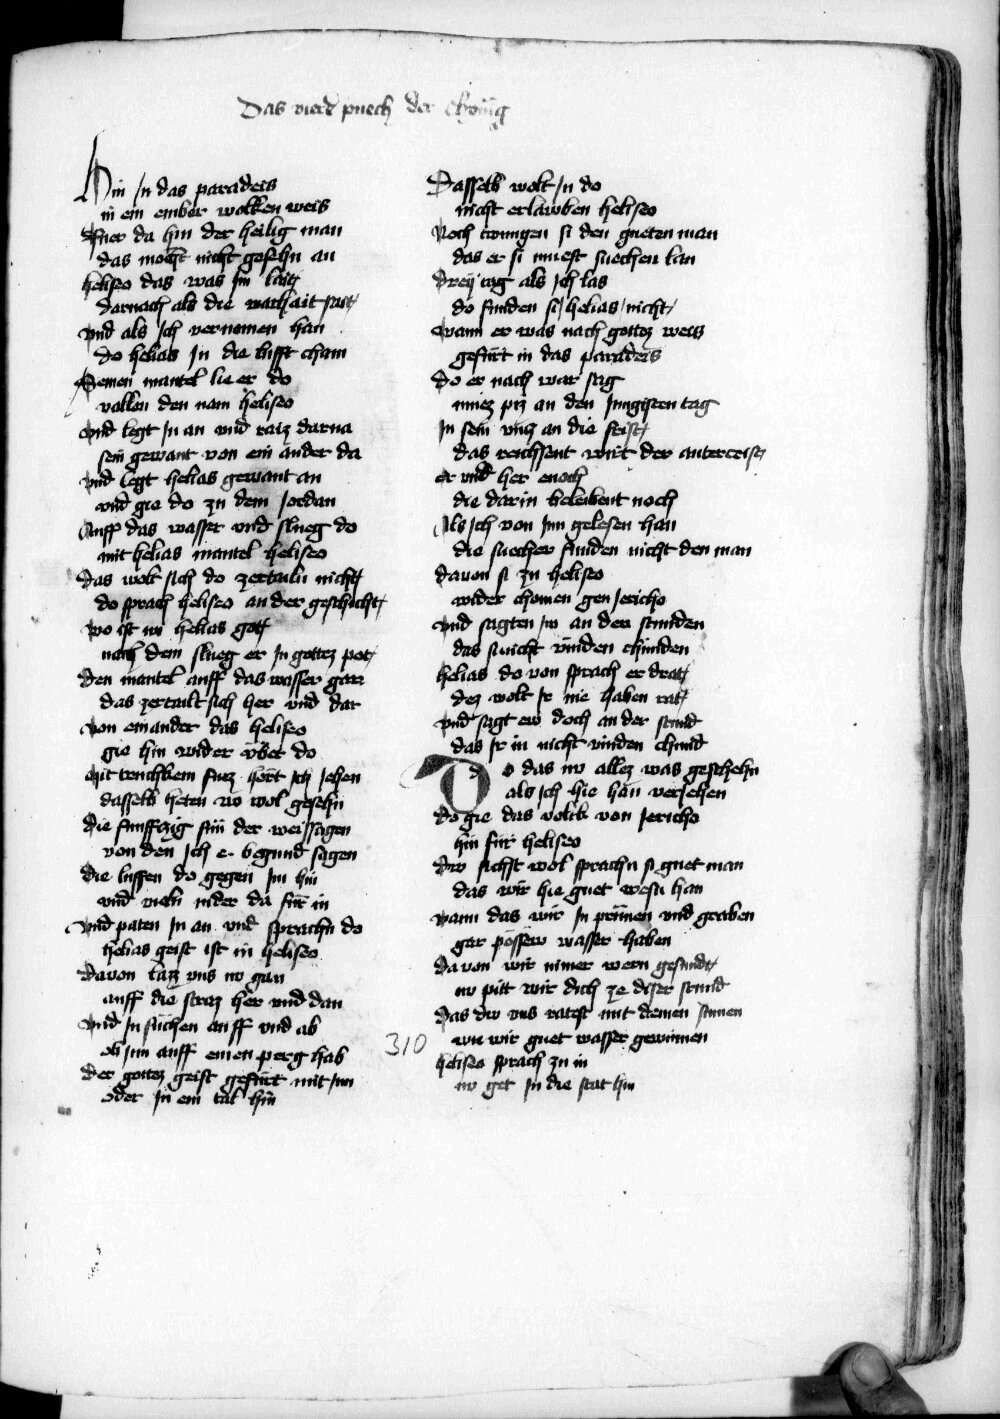 Das vierd puech der Chönig
Hin in das paradeis
in ein ember wolken weis
Fuer da hin der heilig man
das mocht nicht gesehn an
heliseo das was im lait
darnach als die warhait sait
vnd als ich vernomen han
do helias in die lufft cham
Seinen mantel lie er do
vallen den nam heliseo
vnd legt in an vnd raiz darna
sein gewant von ein ander da
vnd legt helias gewant an
vnd gie do zu dem Jordan
Auff das wasser vnd slueg do
mit helias mantel heliseo
das wolt sich do zertailn nicht
do sprach heliseo an der geschicht
wo ist nv helias got
nach dem slueg er in gottez pot
den mantel auff das wasser gar
das zertailt sich her vnd dar
von einander das heliseo
gie hin wider vber do
mit trucken fuez hort ich iehen
dasselb heten no wol gesehn
die funffczig sun der weissagen
von den ich e begund sagen
die luffen do gegen im hin
vnd vieln nider da für in
vnd paten in an vnd sprachn do
helias geist ist in heliseo
davon lazz vns nv gan
auff die straz her vnd dan
vnd in suchen auff vnd ab
ob inn auff einen perg hab
der gottez geist gefürt mit im
oder in ein tal hin
Dasselb wolt in do
nicht erlawben heliseo
Noch twungen si den gueten man
das er si muest suechen lan
drey tag als ich las
do funden si helias nicht
wann er was nach gottez weis
gefürt in das paradeis
do er nach war sag
muez piz an den Jungisten tag
In sein vncz an die frist
das reichsent wirt der antercrist
er vnd her enoch
die darin beleibent noch
Als ich von inn gelesen han
die suecher funden nicht den man
davon si zu heliseo
wider chomen gen Jericho
vnd sagten im an den stunden
das si nicht vinden chunden
helias do von sprach er drat
dez wolt ir nie haben rat
vnd sagt ew doch an der stund
das ir in nicht vinden chund
Do das nv allez was geschehn
als ich hie han veriehen
do gie das volck von Jericho
hin für heliseo
dw sichst wol sprachn si guet man
das wir hie guet wesn han
wann das wir in prünnen vnd graben
gar pössew wasser haben
davon wir nimer wern gesundt
nv pitt wir dich ze diser stund
das dw vns ratest mit deinen sinnen
wie wir guet wasser gewinnen
heliseo sprach zu in
nv get in die stat hin
310